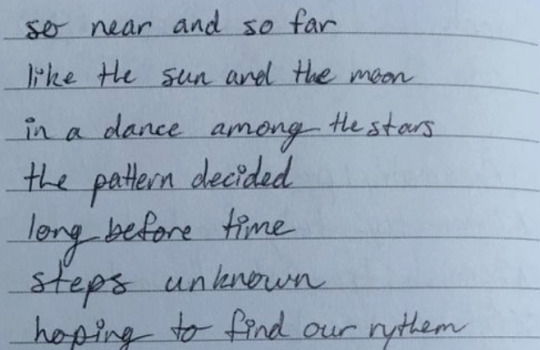 so near and so far
like the sun and the moon
in a dance among the stars
the pattern decided
long before time
steps unknown
hoping to find our rythem